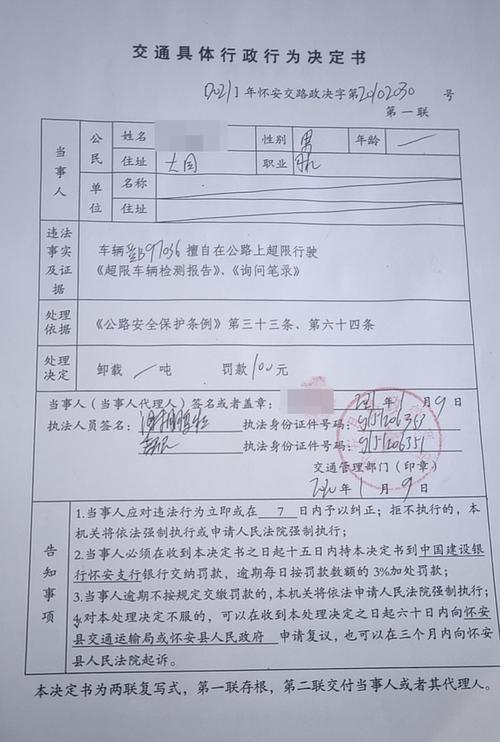 交通具体行政行为决定书
(2021)年怀安交路政决字第20102030号
第一联
当事人 公民 姓名 性别 男 年龄 一
住址 大同 职业 司机
单位 名称
住址
违法事实及证据 车辆 97036 擅自在公路上超限行驶
《超限车辆检测报告》、《询问笔录》
处理依据 《公路安全保护条例》第三十三条、第六十四条
处理决定 卸载 一 吨 罚款 100 元
当事人(当事人代理人)签名或者盖章: 2021年1月9日
执法人员签名: 执法身份证件号码:
执法身份证件号码:
交通管理部门(印章)
年1月9日
告知事项
1.当事人应对违法行为立即或在 7 日内予以纠正;拒不执行的,本
机关将依法强制执行或申请人民法院强制执行;
2.当事人必须在收到本决定书之日起十五日内持本决定书到中国建设银
行怀安支行银行交纳罚款,逾期每日按罚款数额的3%加处罚款;
3.当事人逾期不按规定交缴罚款的,本机关将依法申请人民法院强制执行;
4.对本处理决定不服的,可以在收到本处理决定之日起六十日内向怀安
县交通运输局或怀安县人民政府 申请复议,也可以在三个月内向怀安
县人民法院起诉。
本决定书为两联复写式,第一联存根,第二联交付当事人或者其代理人。